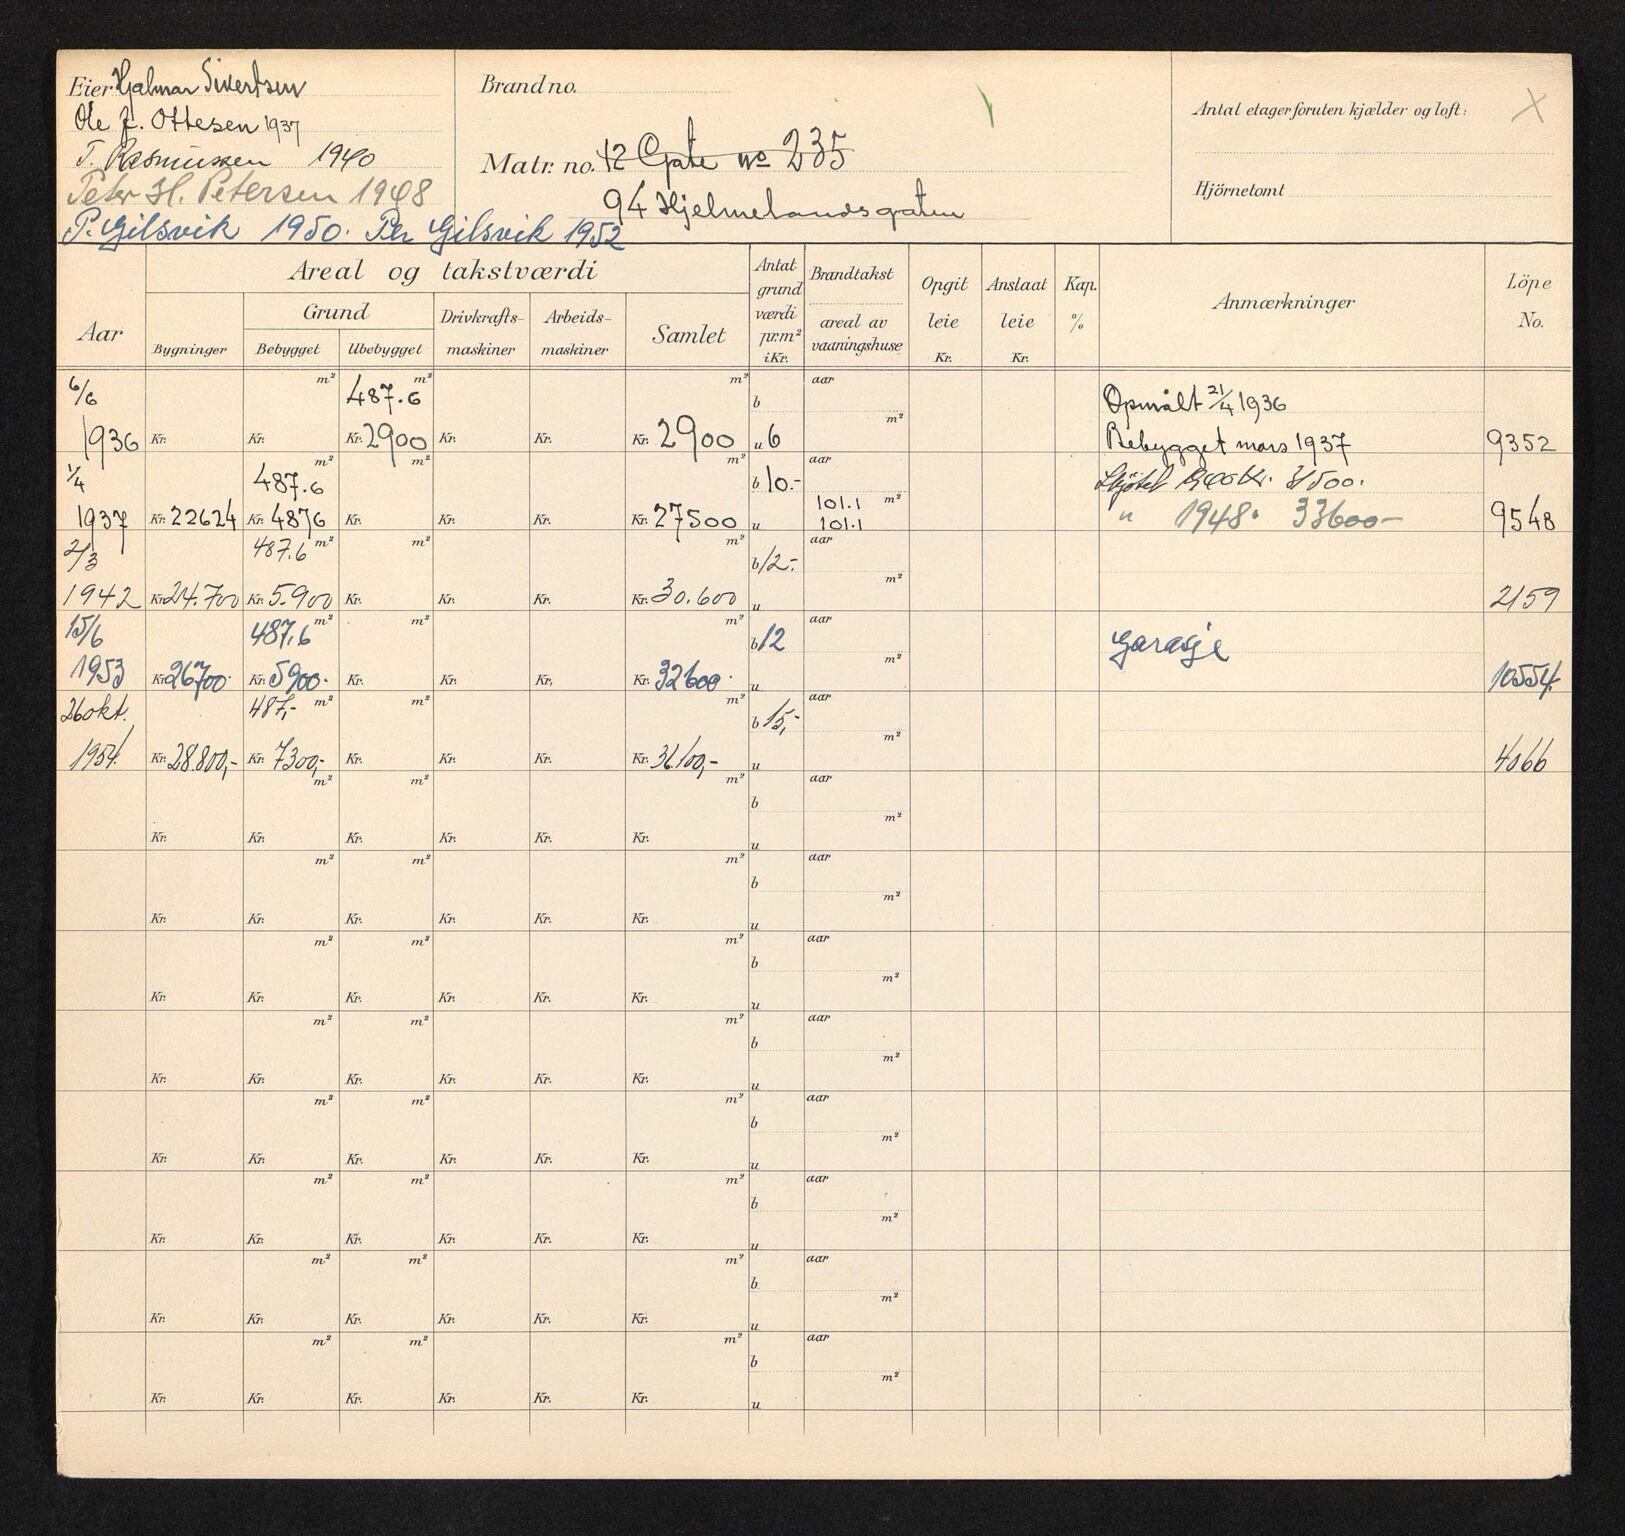 Eier Hjalmar Sivertsen
Ole J. Ottesen 1937
T. Rasmussen 1940
Peter H. Petersen 1948
P. Gilsvik 1950. Per Gilsvik 1952
Brand no.
Matr. no. 12 Gate no 235
94 Hjelmelandsgaten
Antal etager foruten kjælder og loft:
Hjörnetomt
Aar
Areal og takstværdi
Bygninger
Grund
Bebygget
Ubebygget
Drivkrafts-
maskiner
Arbeids-
maskiner
Samlet
Antat
grund
værdi
pr.m²
i Kr.
Brandtakst
areal av
vaaningshuse
Opgit
leie
Kr.
Anslaat
leie
Kr.
Kap.
%
Anmærkninger
Löpe
No.
6/6 m² 487.6 m² m² b aar Opmålt 21/4 1936
1936 Kr. Kr. Kr. 2900 Kr. Kr. Kr. 2900 u 6 m² Bebygget mars 1937 9352
1/4 487.6 m² m² m² b 10.- aar Skjøtet kr. 31500.
1937 Kr. 22624 Kr. 4876 Kr. Kr. Kr. Kr. 27500 u 101.1 m² 101.1 " 1948. 33600- 9548
2/3 487.6 m² m² m² b 12.- aar
1942 Kr. 24.700 Kr. 5.900 Kr. Kr. Kr. Kr. 30.600 u m² 2159
15/6 487,6 m² m² m² b 12 aar Garasje
1953 Kr. 26700. Kr. 5900. Kr. Kr. Kr. Kr. 32600. u m² 10554.
26 okt. 487,- m² m² m² b 15,- aar
1954. Kr. 28.800,- Kr. 7300,- Kr. Kr. Kr. Kr. 36.100,- u m² 4066
m² m² m² b aar
Kr. Kr. Kr. Kr. Kr. Kr. u m²
m² m² m² b aar
Kr. Kr. Kr. Kr. Kr. Kr. u m²
m² m² m² b aar
Kr. Kr. Kr. Kr. Kr. Kr. u m²
m² m² m² b aar
Kr. Kr. Kr. Kr. Kr. Kr. u m²
m² m² m² b aar
Kr. Kr. Kr. Kr. Kr. Kr. u m²
m² m² m² b aar
Kr. Kr. Kr. Kr. Kr. Kr. u m²
m² m² m² b aar
Kr. Kr. Kr. Kr. Kr. Kr. u m²
m² m² m² b aar
Kr. Kr. Kr. Kr. Kr. Kr. u m²